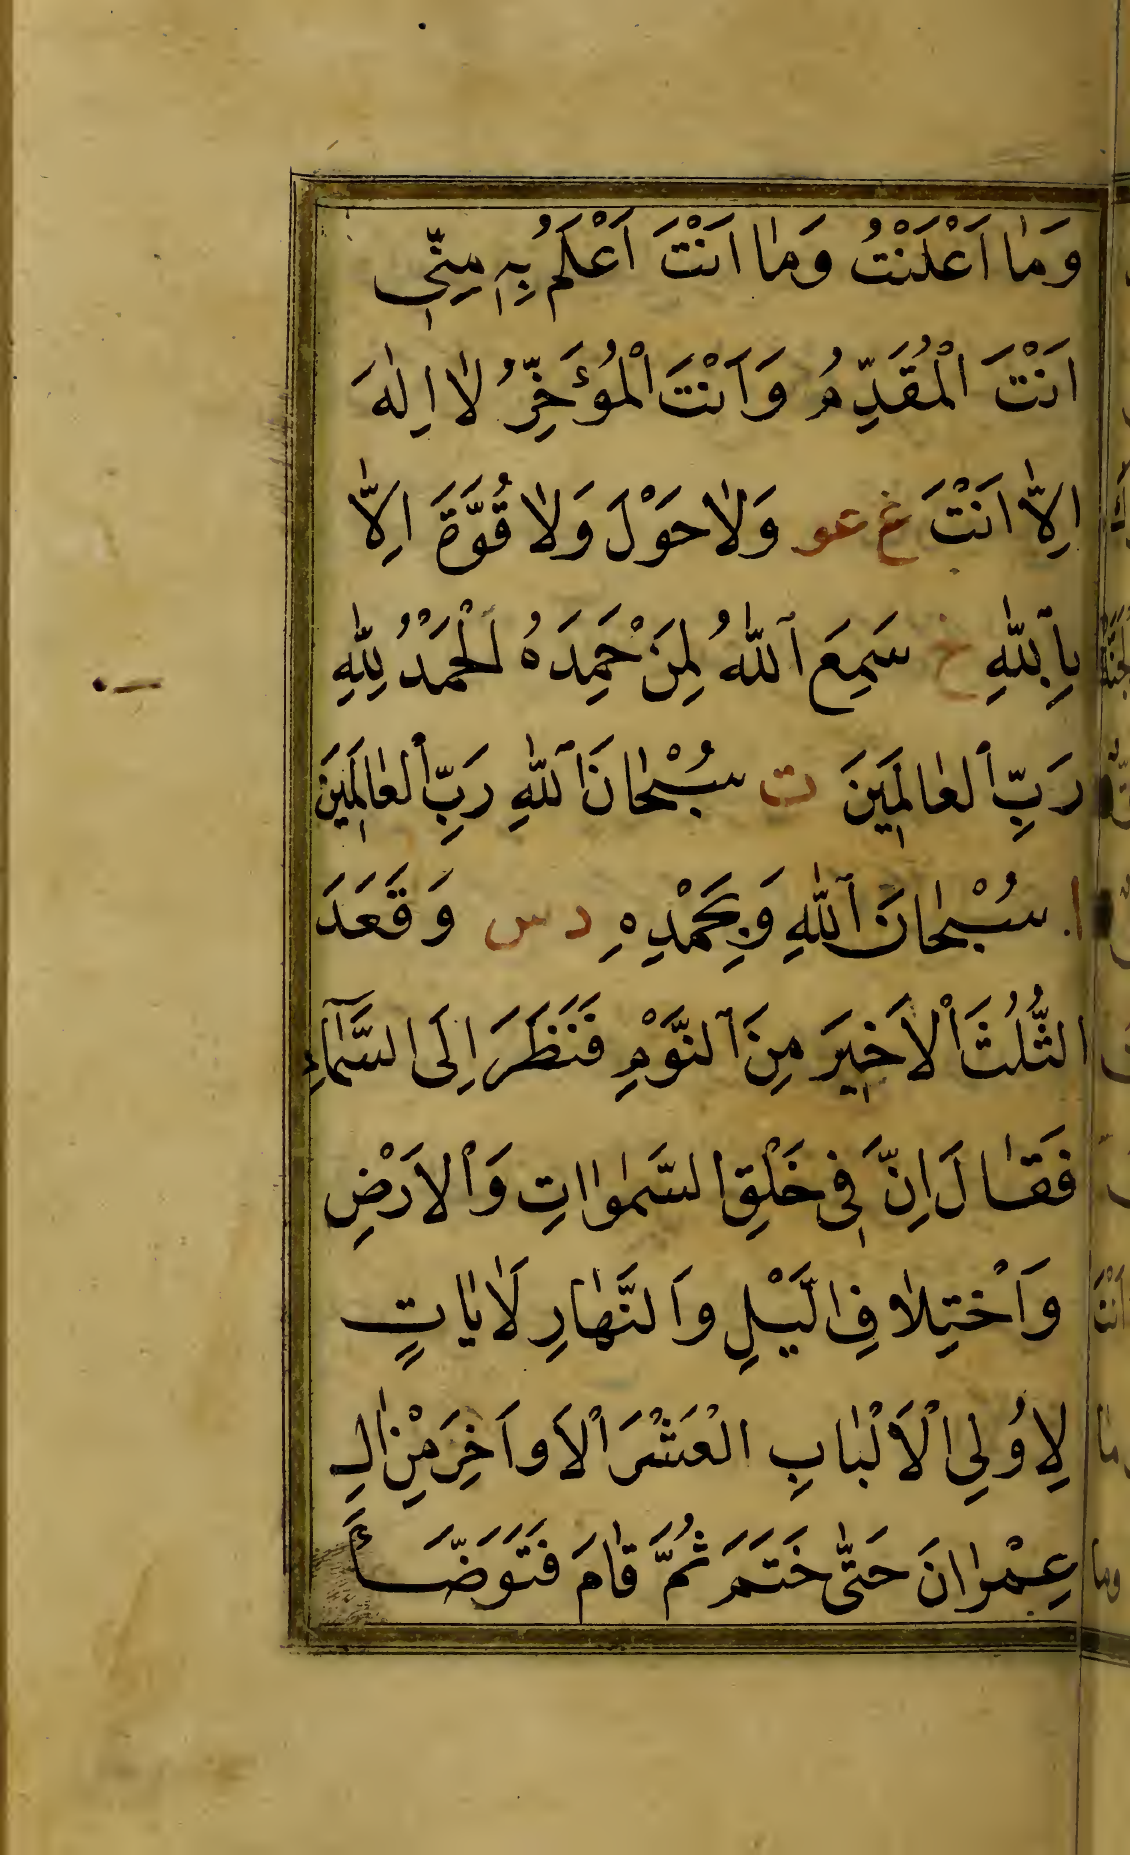 وَمٰا اَعْلَنْتُ وَمٰا اَنْتَ اَعْلَمُ بِهِ مِنّٖى
اَنْتَ الْمُقَدِّمُ وَاَنْتَ الْمُؤَخِّرُ لٰا اِلٰهَ
اِلاّٰ اَنْتَ غ عو وَلٰا حَوْلَ وَلٰا قُوَّةَ اِلاّٰ
بِاللّٰهِ خ سَمِعَ اللّٰهُ لِمَنْ حَمِدَهُ اَلْحَمْدُ لِلّٰهِ
رَبِّ الْعٰالَمٖينَ ت سُبْحٰانَ اللّٰهِ رَبِّ الْعٰالَمٖينَ
ا سُبْحٰانَ اللّٰهِ وَبِحَمْدِهِ د س وَقَعَدَ
الثُّلُثَ الْاَخٖيرَ مِنَ النَّوْمِ فَنَظَرَ اِلَى السَّمٰآءِ
فَقٰالَ اِنَّ فٖى خَلْقِ السَّمٰوٰاتِ وَالْاَرْضِ
وَاخْتِلٰافِ الَّيْلِ وَالنَّهٰارِ لَاٰيٰاتٍ
لِاُولِى الْاَلْبٰابِ الْعَشْرَ الْاَوٰاخِرَ مِنْ اٰلِ
عِمْرٰانَ حَتّٰى خَتَمَ ثُمَّ قٰامَ فَتَوَضَّأَ